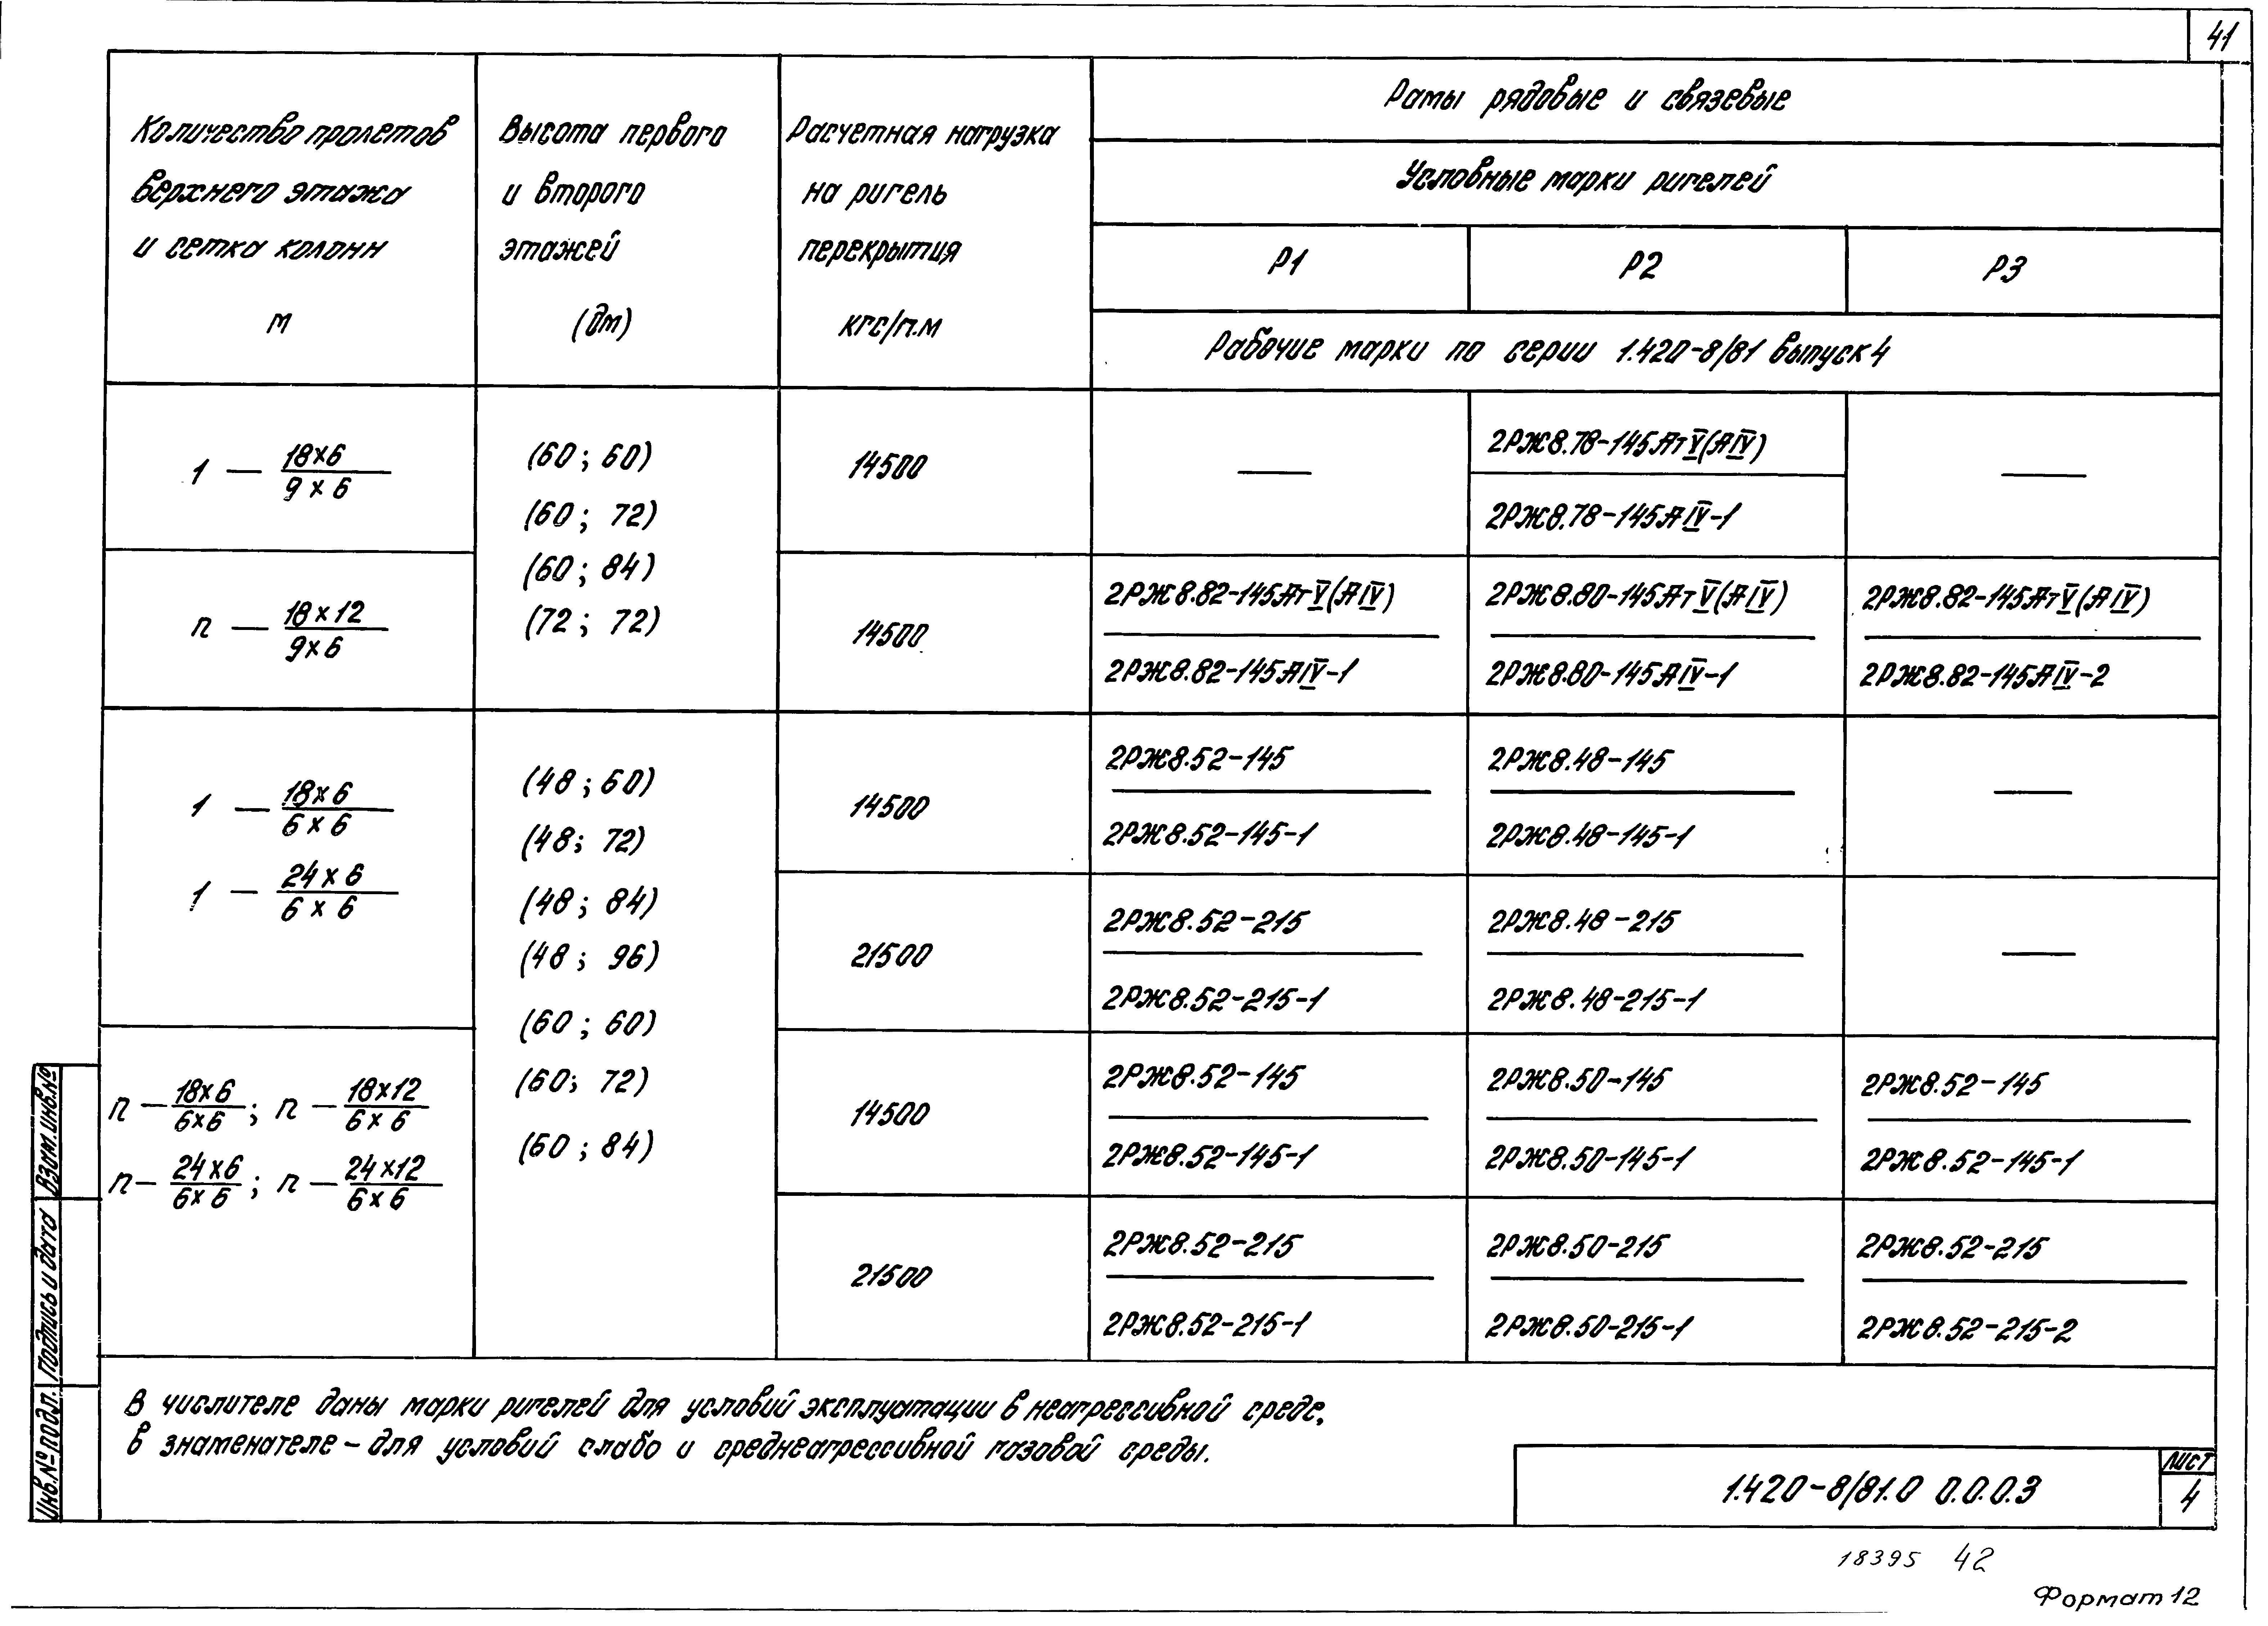 41
Количество пролетов
верхнего этажа
и сетка колонн
м
Высота первого
и второго
этажей
(дм)
Расчетная нагрузка
на ригель
перекрытия
кгс/п.м
Рамы рядовые и связевые
Условные марки ригелей
Р1
Р2
Р3
Рабочие марки по серии 1.420-8/81 выпуск 4
1 — 18×6
9×6
(60; 60)
(60; 72)
(60; 84)
(72; 72)
14500
—
2РЖ8.78-145АтV(АIV)
2РЖ8.78-145АIV-1
—
п — 18×12
9×6
14500
2РЖ8.82-145АтV(АIV)
2РЖ8.82-145АIV-1
2РЖ8.80-145АтV(АIV)
2РЖ8.80-145АIV-1
2РЖ8.82-145АтV(АIV)
2РЖ8.82-145АIV-2
1 — 18×6
6×6
1 — 24×6
6×6
(48; 60)
(48; 72)
(48; 84)
(48; 96)
(60; 60)
(60; 72)
(60; 84)
14500
2РЖ8.52-145
2РЖ8.52-145-1
2РЖ8.48-145
2РЖ8.48-145-1
—
21500
2РЖ8.52-215
2РЖ8.52-215-1
2РЖ8.48-215
2РЖ8.48-215-1
—
п — 18×6 ; п — 18×12
6×6 6×6
п — 24×6 ; п — 24×12
6×6 6×6
14500
2РЖ8.52-145
2РЖ8.52-145-1
2РЖ8.50-145
2РЖ8.50-145-1
2РЖ8.52-145
2РЖ8.52-145-1
21500
2РЖ8.52-215
2РЖ8.52-215-1
2РЖ8.50-215
2РЖ8.50-215-1
2РЖ8.52-215
2РЖ8.52-215-2
В числителе даны марки ригелей для условий эксплуатации в неагрессивной среде,
в знаменателе – для условий слабо и среднеагрессивной газовой среды.
Взам. инв.№
Подпись и дата
Инв.№ подл.
1.420-8/81.0 0.0.0.3
Лист
4
18395 42
Формат 12